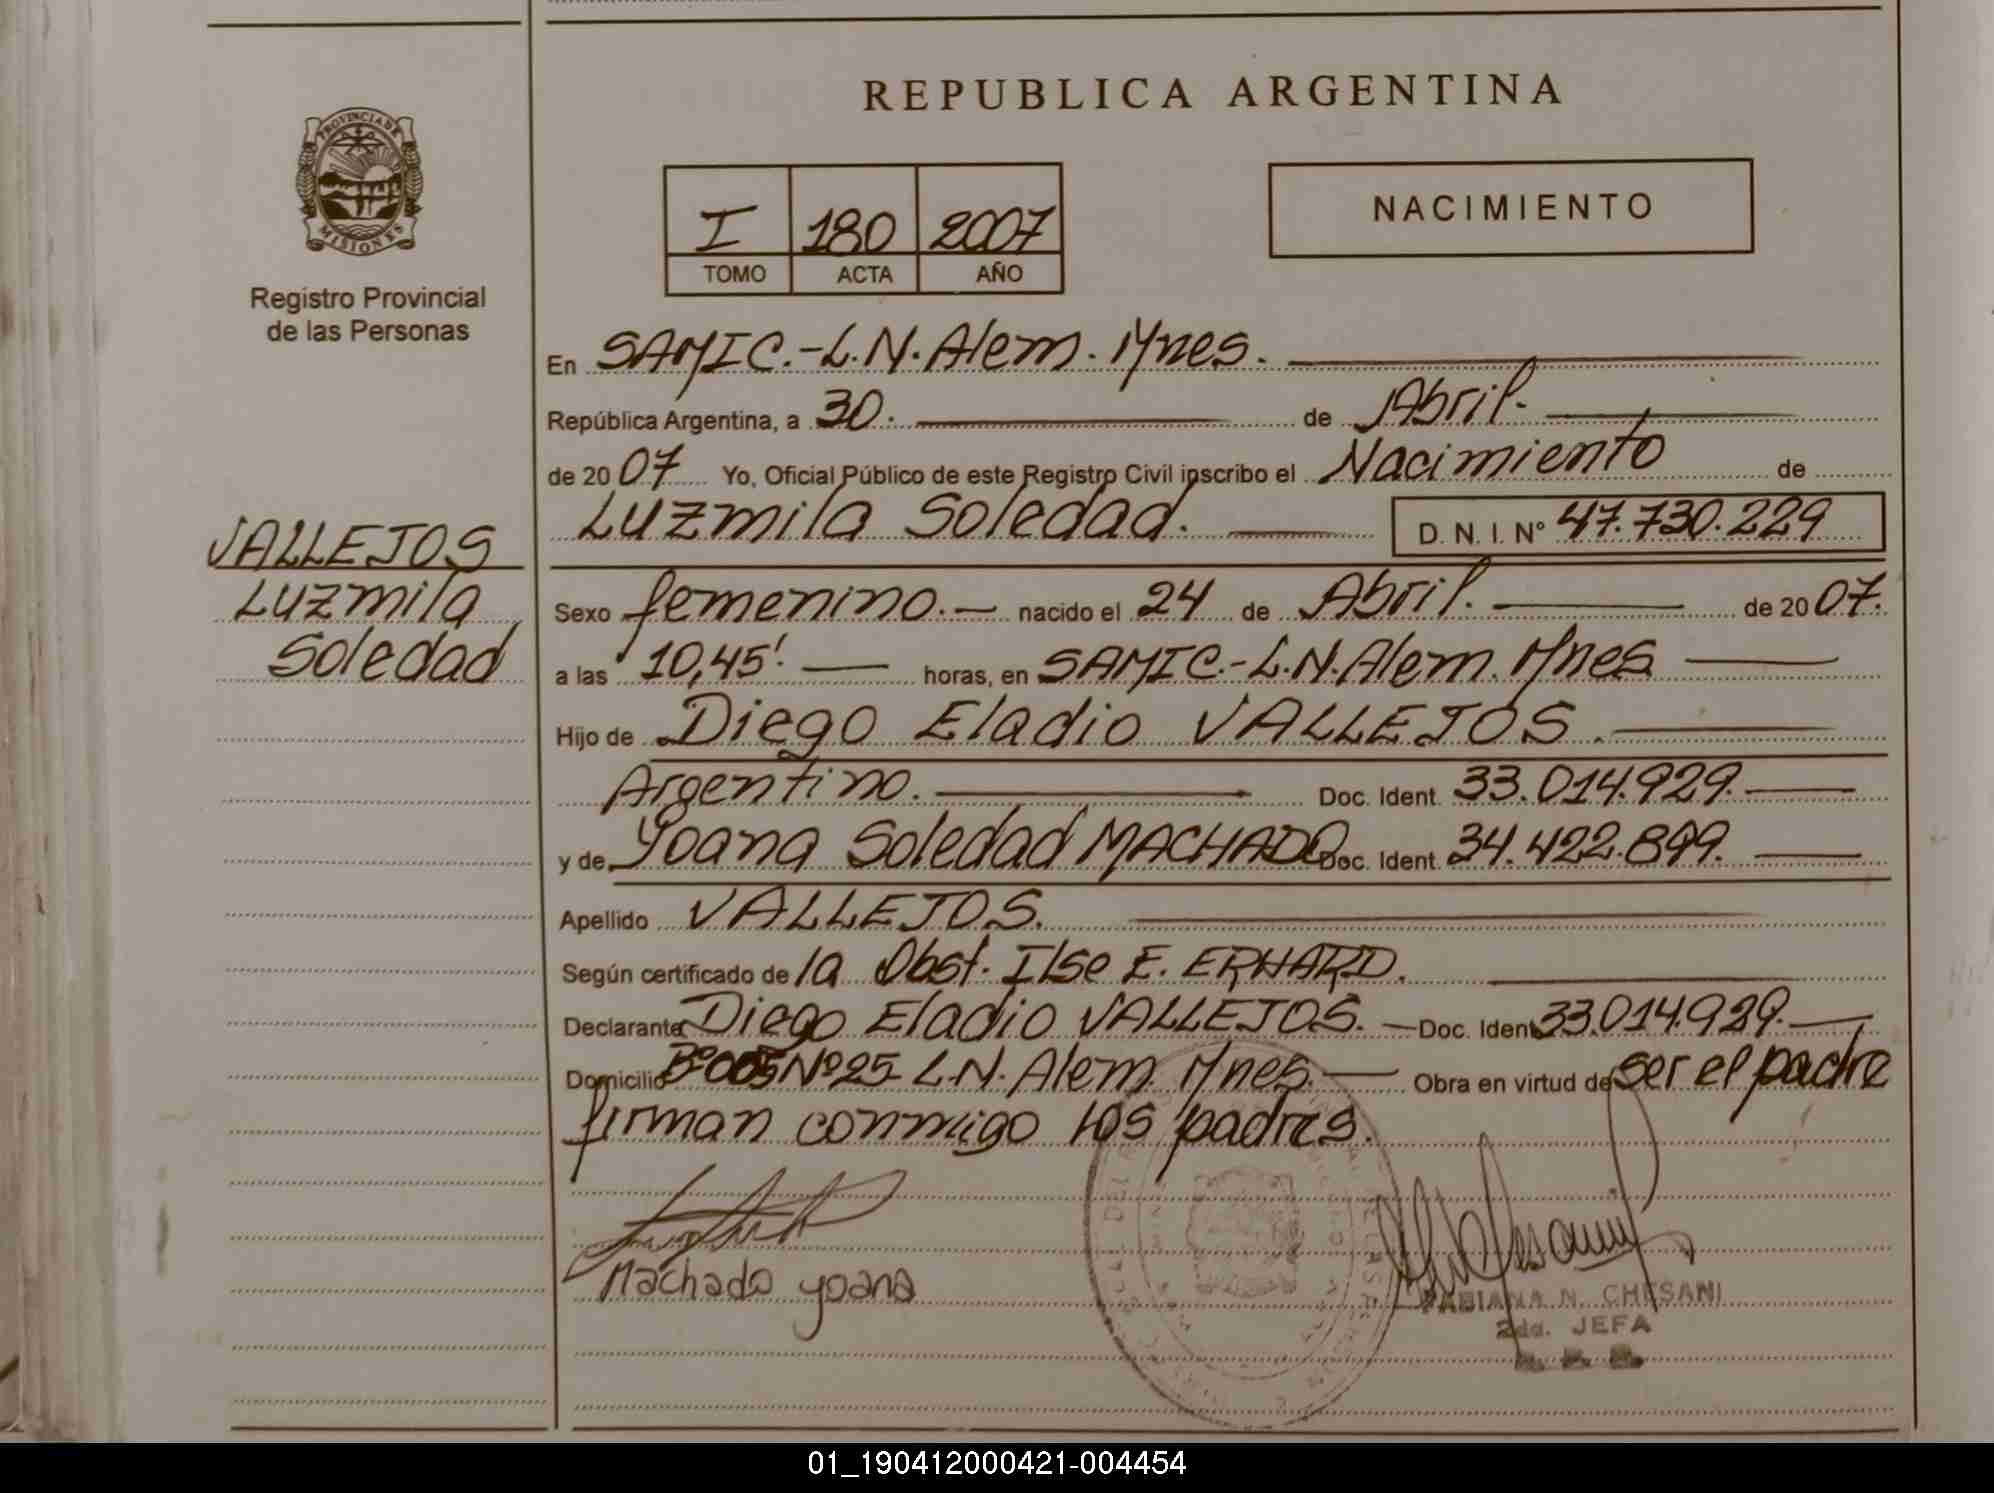 REPUBLICA ARGENTINA
PROVINCIA DE
MISIONES
Registro Provincial
de las Personas
I 180 2007
TOMO ACTA AÑO
NACIMIENTO
En SAMIC.-L.N.Alem. Mnes.
República Argentina, a 30. de Abril.
de 2007 Yo, Oficial Público de este Registro Civil inscribo el Nacimiento de
Luzmila Soledad. D. N. I. N° 47.730.229
VALLEJOS
Luzmila
Soledad
Sexo femenino.- nacido el 24 de Abril. de 2007.
a las 10,45'. horas, en SAMIC.-L.N.Alem. Mnes
Hijo de Diego Eladio VALLEJOS.
Argentino. Doc. Ident. 33.014.929.
y de Yoana Soledad MACHADO Doc. Ident. 34.422.899.
Apellido VALLEJOS.
Según certificado de la Obst. Ilse E. ERHARD.
Declarante Diego Eladio VALLEJOS. Doc. Ident 33.014.929.
Domicilio B° 005 N°25 L.N. Alem. Mnes. Obra en virtud de ser el padre
firman conmigo los padres.
Machado yoana
FABIANA N. CHESANI
2da. JEFA
01_190412000421-004454